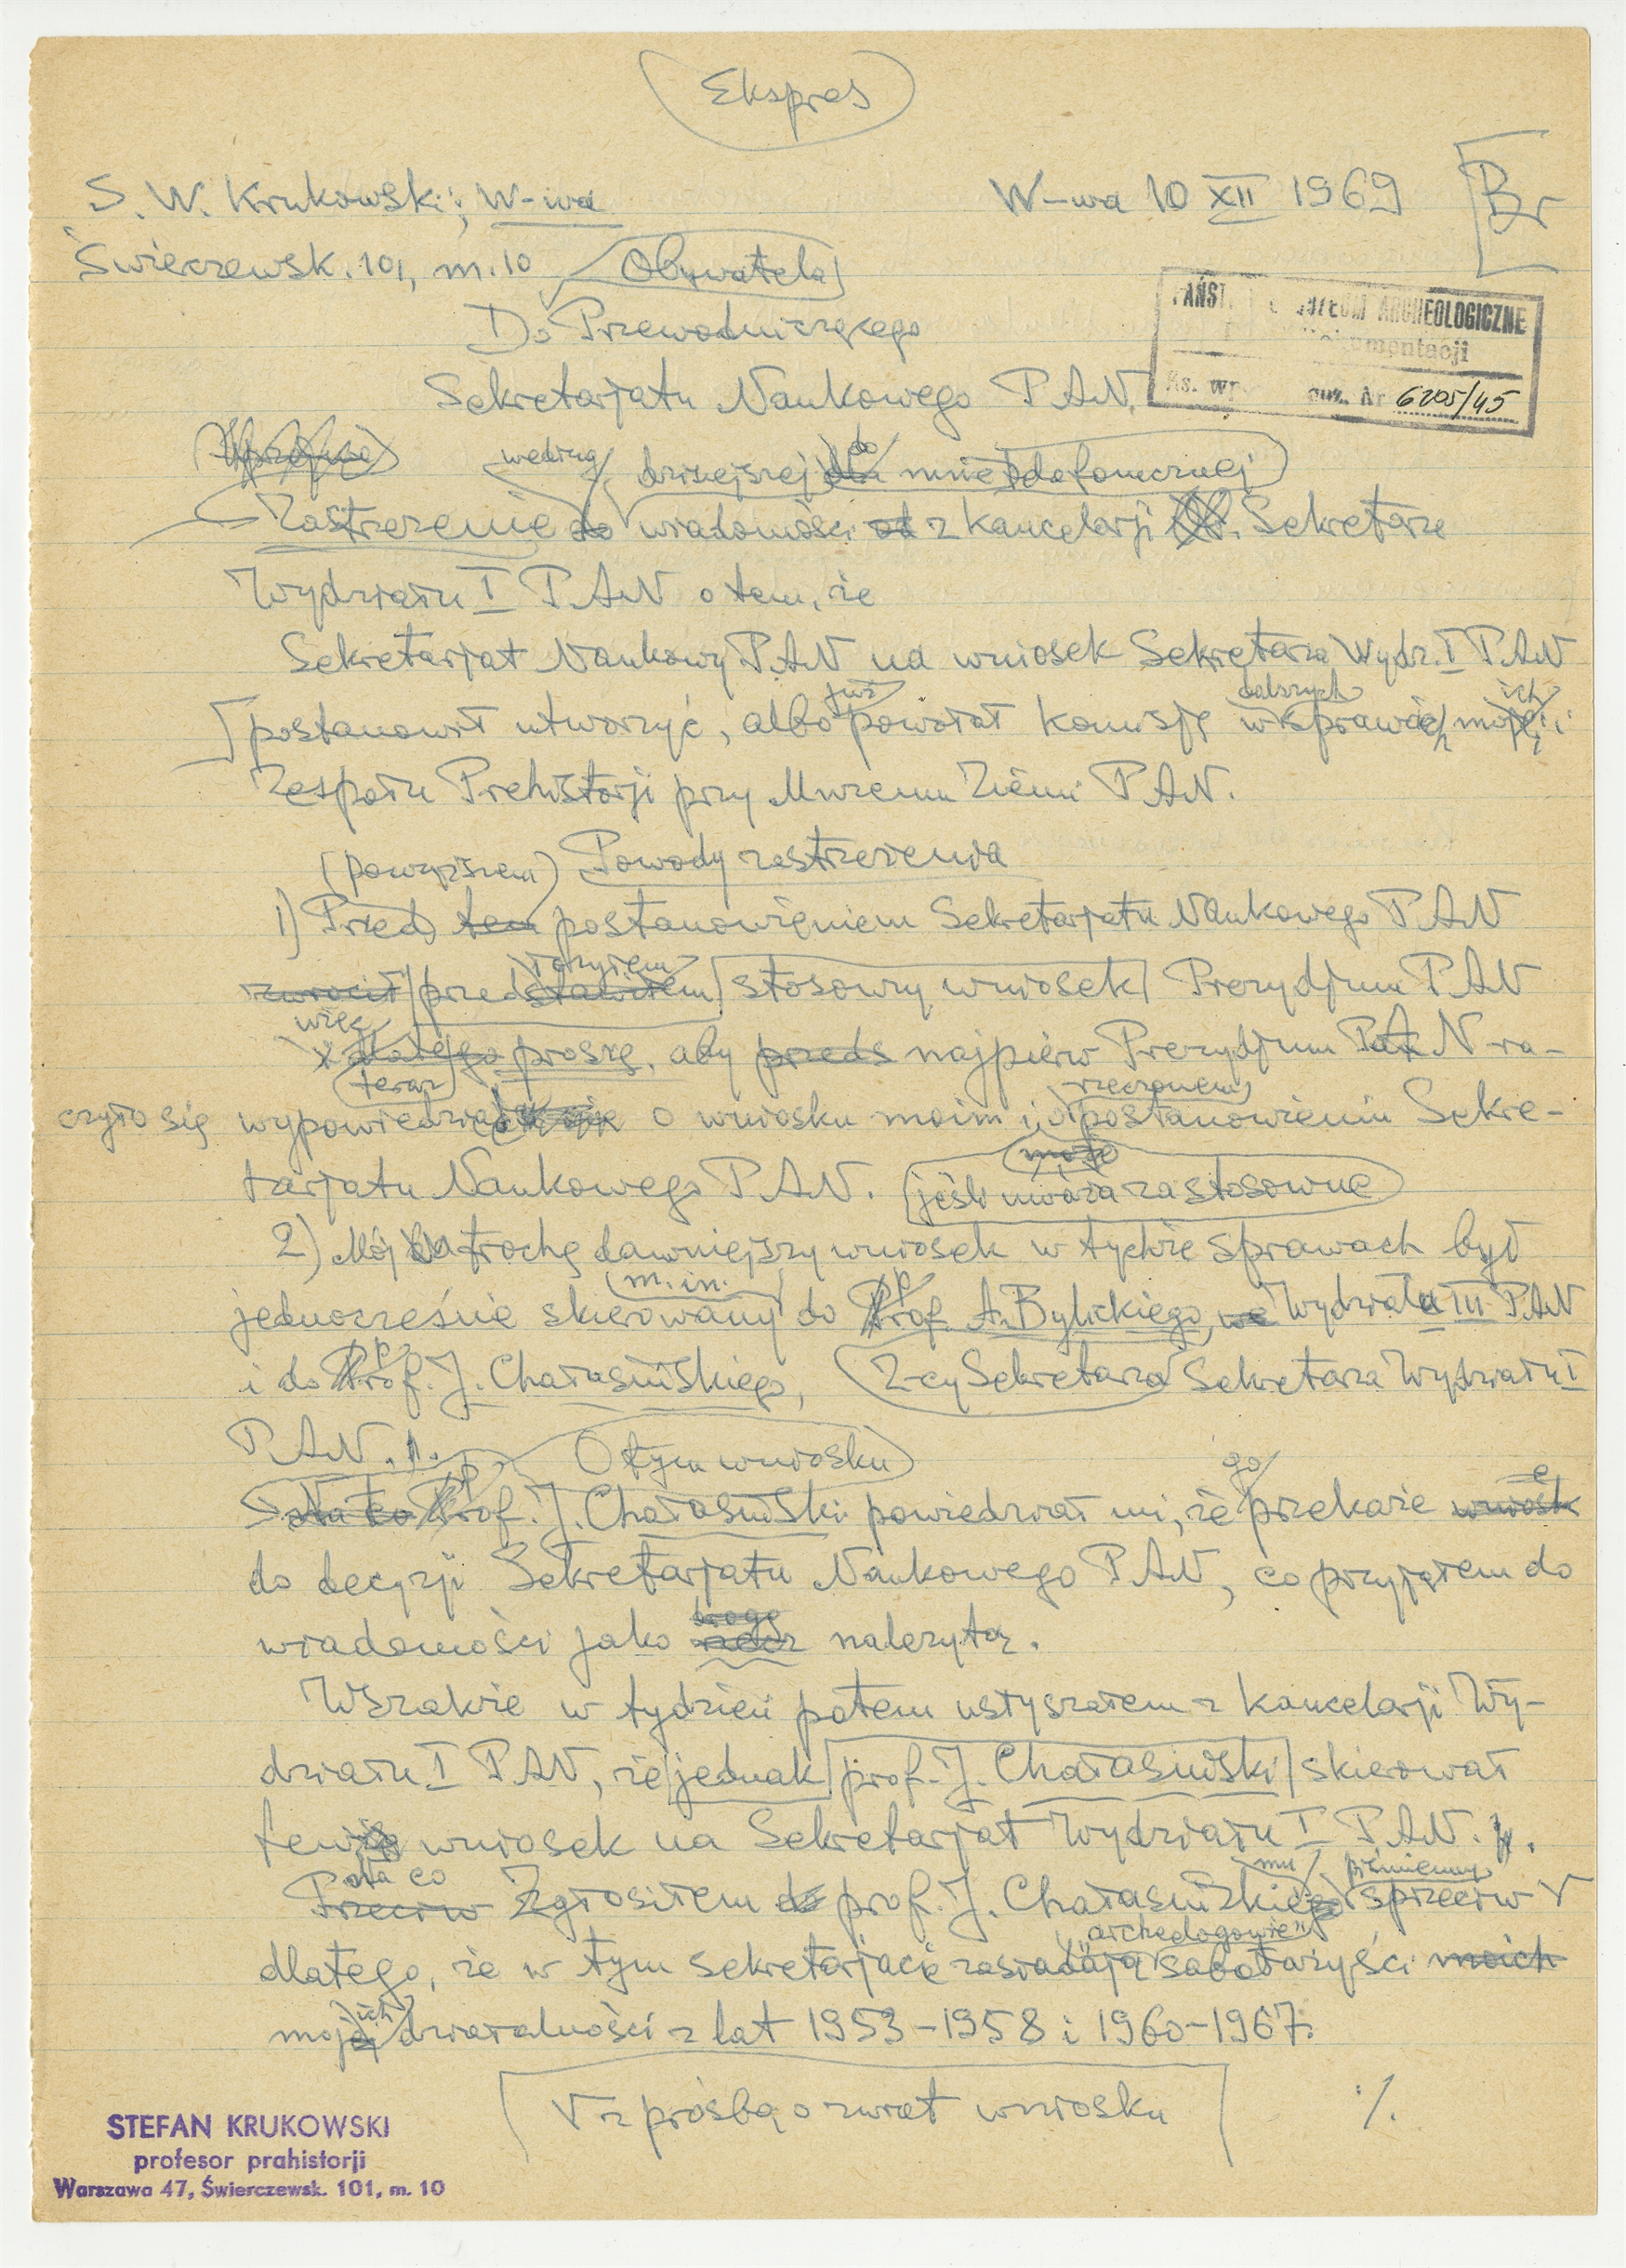 Ekspres
S. W. Krukowski; W-wa
W-wa 10 XII 1969
Br
Świerczewsk. 101, m. 10
Obywatela
Do Przewodniczącego
Sekretarjatu Naukowego PAN.
MUZEUM ARCHEOLOGICZNE
Dokumentacji
6205/45
według dzisiejszej do mnie telefonicznej
Zastrzeżenie do wiadomości od z kancelarji Sekretarza
Wydziału I PAN o tem, że
Sekretarjat Naukowy PAN na wniosek Sekretarza Wydz. I PAN
już dalszych ich
postanowił utworzyć, albo powołał komisję w sprawach moich i
Zespołu Prehistorji przy Muzeum Ziemi PAN.
(powyższem) Powody zastrzeżenia
1) Przed tem postanowieniem Sekretarjatu Naukowego PAN
łożyłem
zwrócił przedstawiłem stosowny wniosek Prezydjum PAN
więc
dlatego proszę, aby przeds najpierw Prezydjum PAN ra-
teraz rzeczonem
czyło się wypowiedzieć o wniosku moim i o postanowieniu Sekre-
może
tarjatu Naukowego PAN. jeśli uważa za stosowne
2) Mój trochę dawniejszy wniosek w tychże sprawach był
m. in.
jednocześnie skierowany do prof. A. Bylickiego, we Wydziału III PAN
i do prof. J. Chałasińskiego, Z-cy Sekretarza Sekretarza Wydziału I
PAN.
O tym wniosku
go
Na to prof. J. Chałasiński powiedział mi, że przekaże wniosk
do decyzji Sekretarjatu Naukowego PAN, co przyjąłem do
drogę
wiadomości jako należytą.
Wszakże w tydzień potem usłyszałem z kancelarji Wy-
działu I PAN, że jednak prof. J. Chałasiński skierował
ten wniosek na Sekretarjat Wydziału I PAN.
na co mu piśmienny
Przeciw Zgłosiłem do prof. J. Chałasińskiego sprzeciw V
"archeologowie"
dlatego, że w tym sekretarjacie zasiadają sabotażyści moich
ich
mojej działalności z lat 1953-1958 i 1960-1967.
V z prośbą o zwrot wniosku
./.
STEFAN KRUKOWSKI
profesor prahistorji
Warszawa 47, Świerczewsk. 101, m. 10